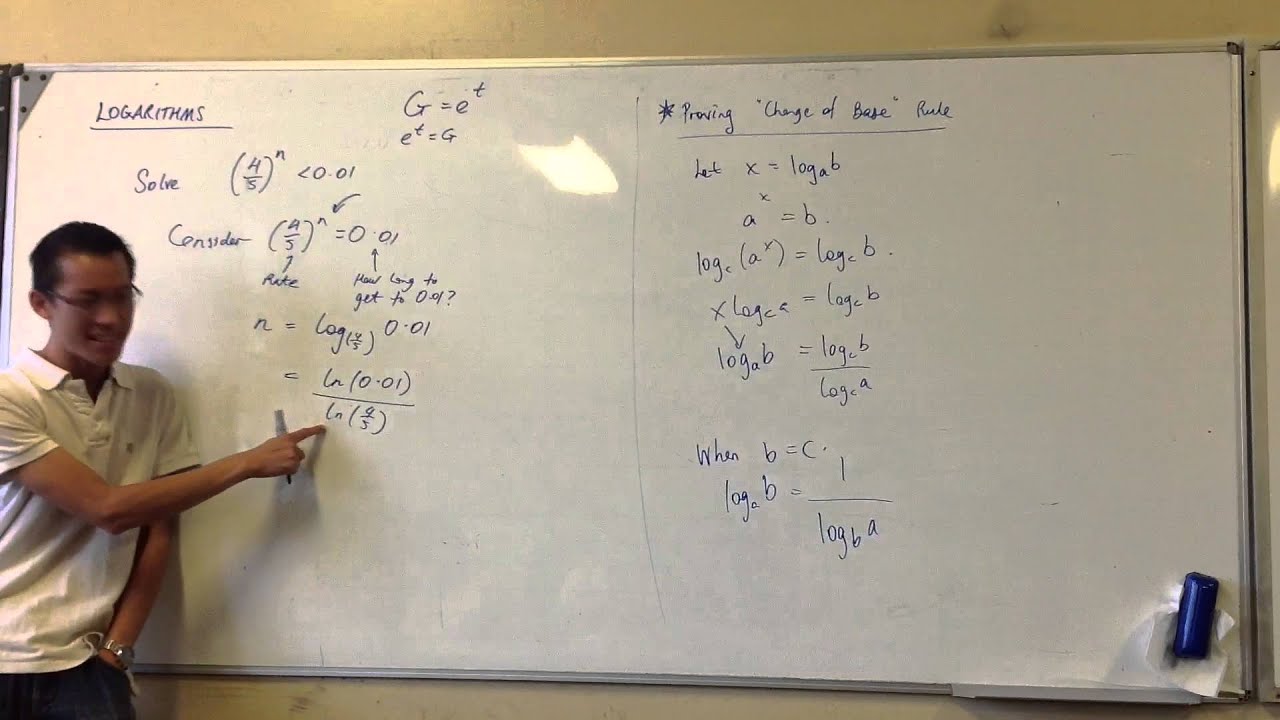 LOGARITHMS
G = e^t
e^t = G
Solve (4/5)^n < 0.01
Consider (4/5)^n = 0.01
Rate
How long to
get to 0.01?
n = log_(4/5) 0.01
= ln(0.01)
ln(4/5)
* Proving "Change of Base" Rule
Let x = log_a b
a^x = b.
log_c (a^x) = log_c b.
x log_c a = log_c b
log_a b = log_c b
log_c a
When b = c.
log_a b = 1
log_b a